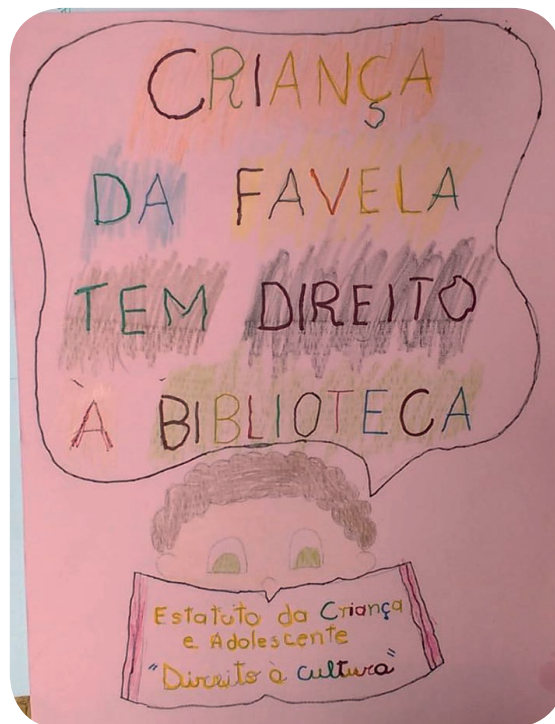 CRIANÇA
DA FAVELA
TEM DIREITO
À BIBLIOTECA
Estatuto da Criança
e Adolescente
"Direito à cultura"